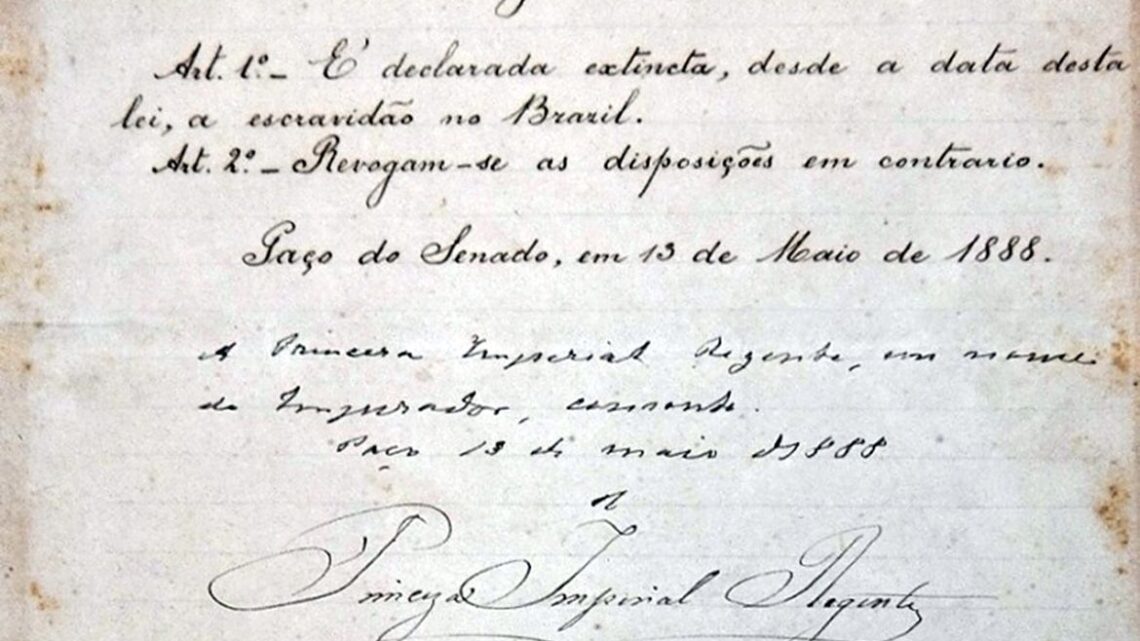 Art. 1º_ E' declarada extincta, desde a data desta
lei, a escravidão no Brazil.
Art. 2º_ Revogam-se as disposições em contrario.
Paço do Senado, em 13 de Maio de 1888.
A Princeza Imperial Regente, em nome
do Imperador, consente.
Paço 13 de maio de 1888
A
Princeza Imperial Regente